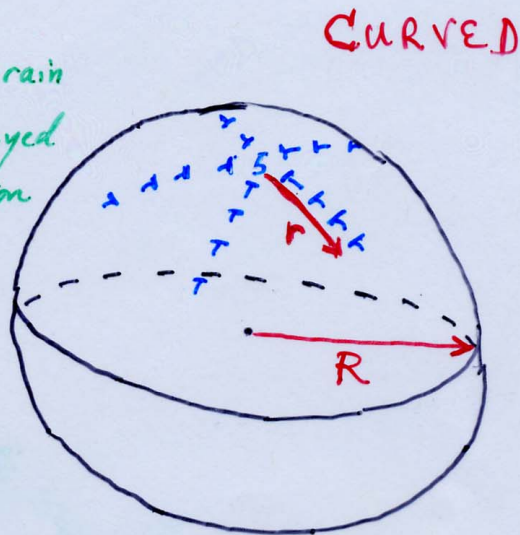 CURVED
rain
yed
on
5
r
R